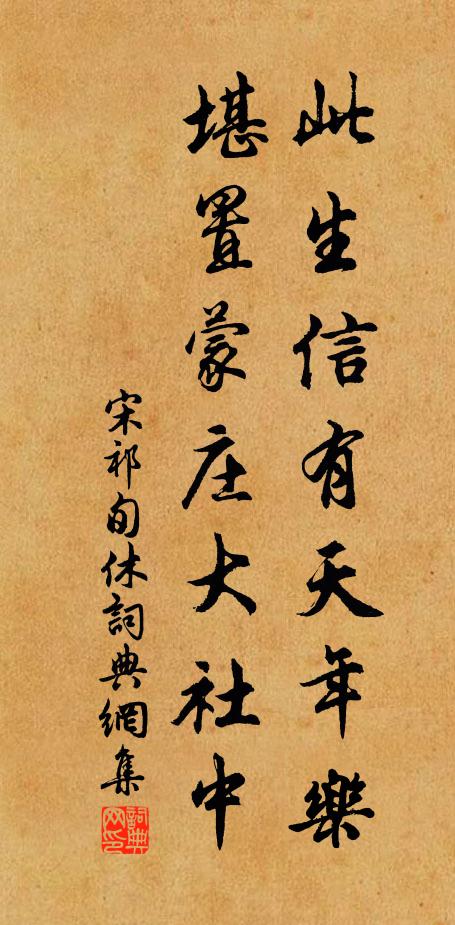 此生信有天年樂
堪置蒙庄大社中
宋祁旬休詞典網集
詞典网印